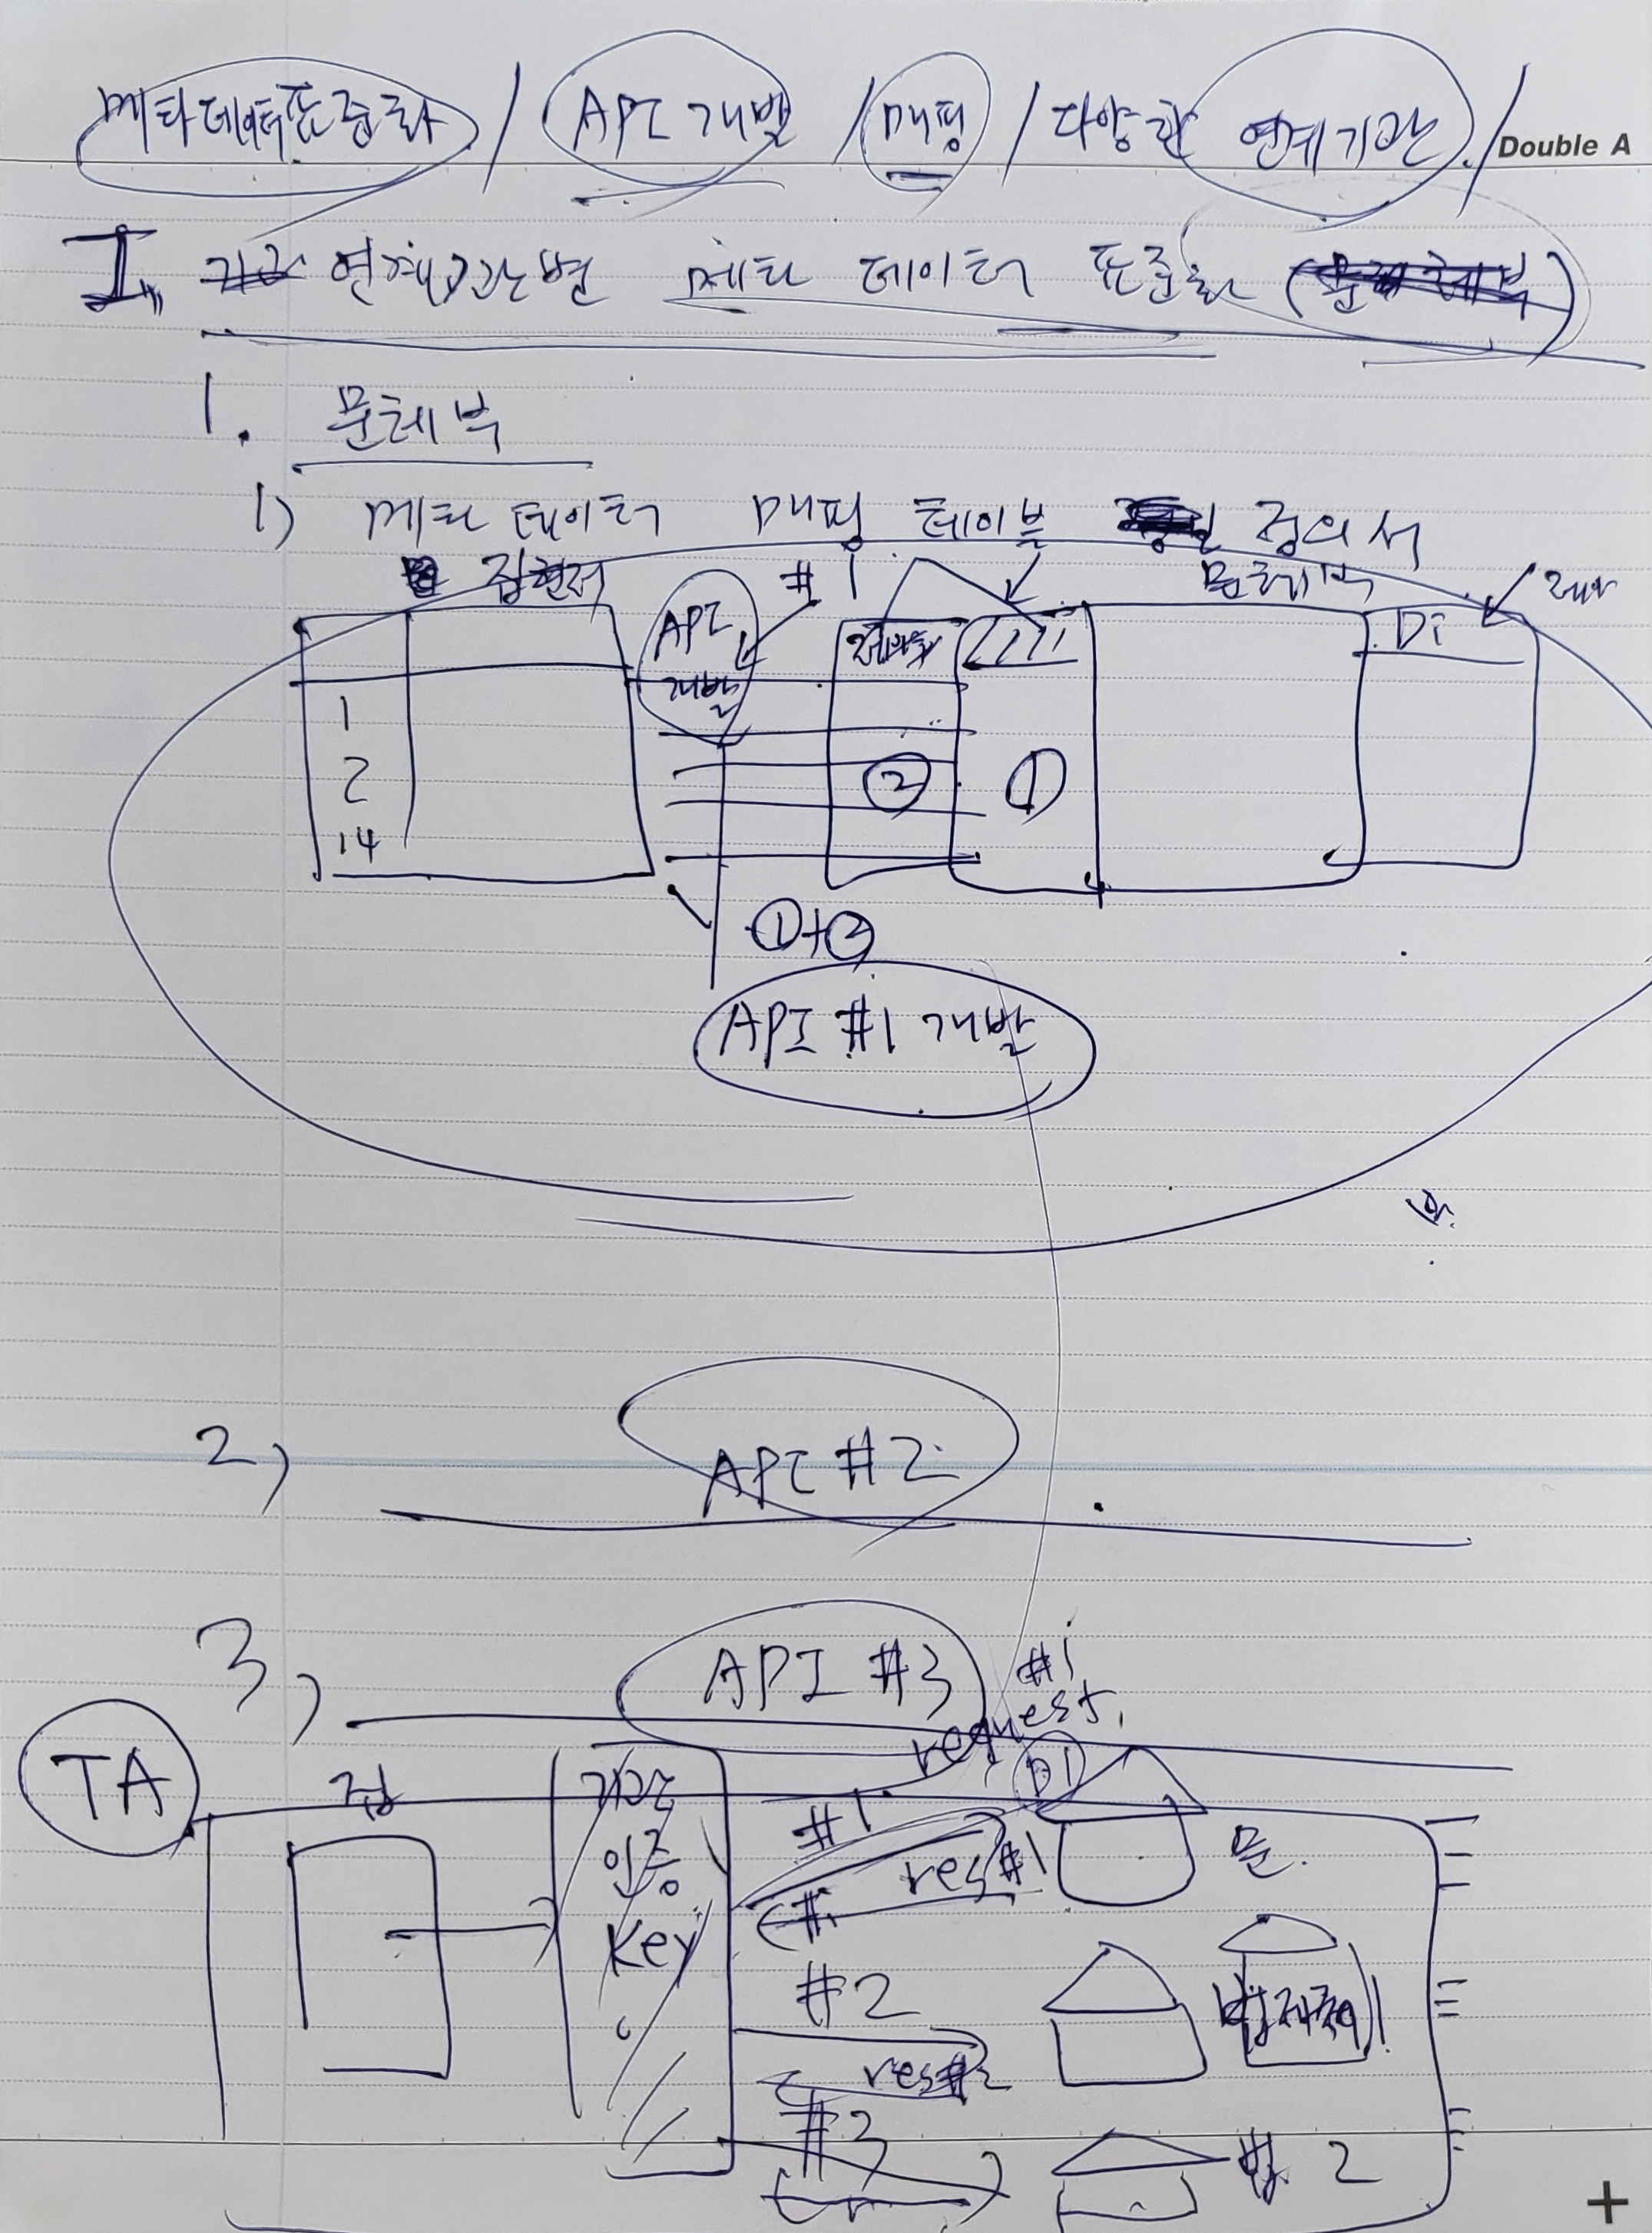 메타데이터표준화 / API 개발 / 매핑 / 다양한 연계기관 /
Double A
I. 연계기관별 메타 데이터 표준화 (
1. 문체부
1) 메타 데이터 매핑 테이블 정의서
집현전 #1 문체부
API 개발
Di
1
2
14
② ①
①+②
API #1 개발
2) API #2
3) API #3
#1 request
TA
집
기관
인증
Key
D1
#1
res #1
문.
#2
res #2
#3
법 2